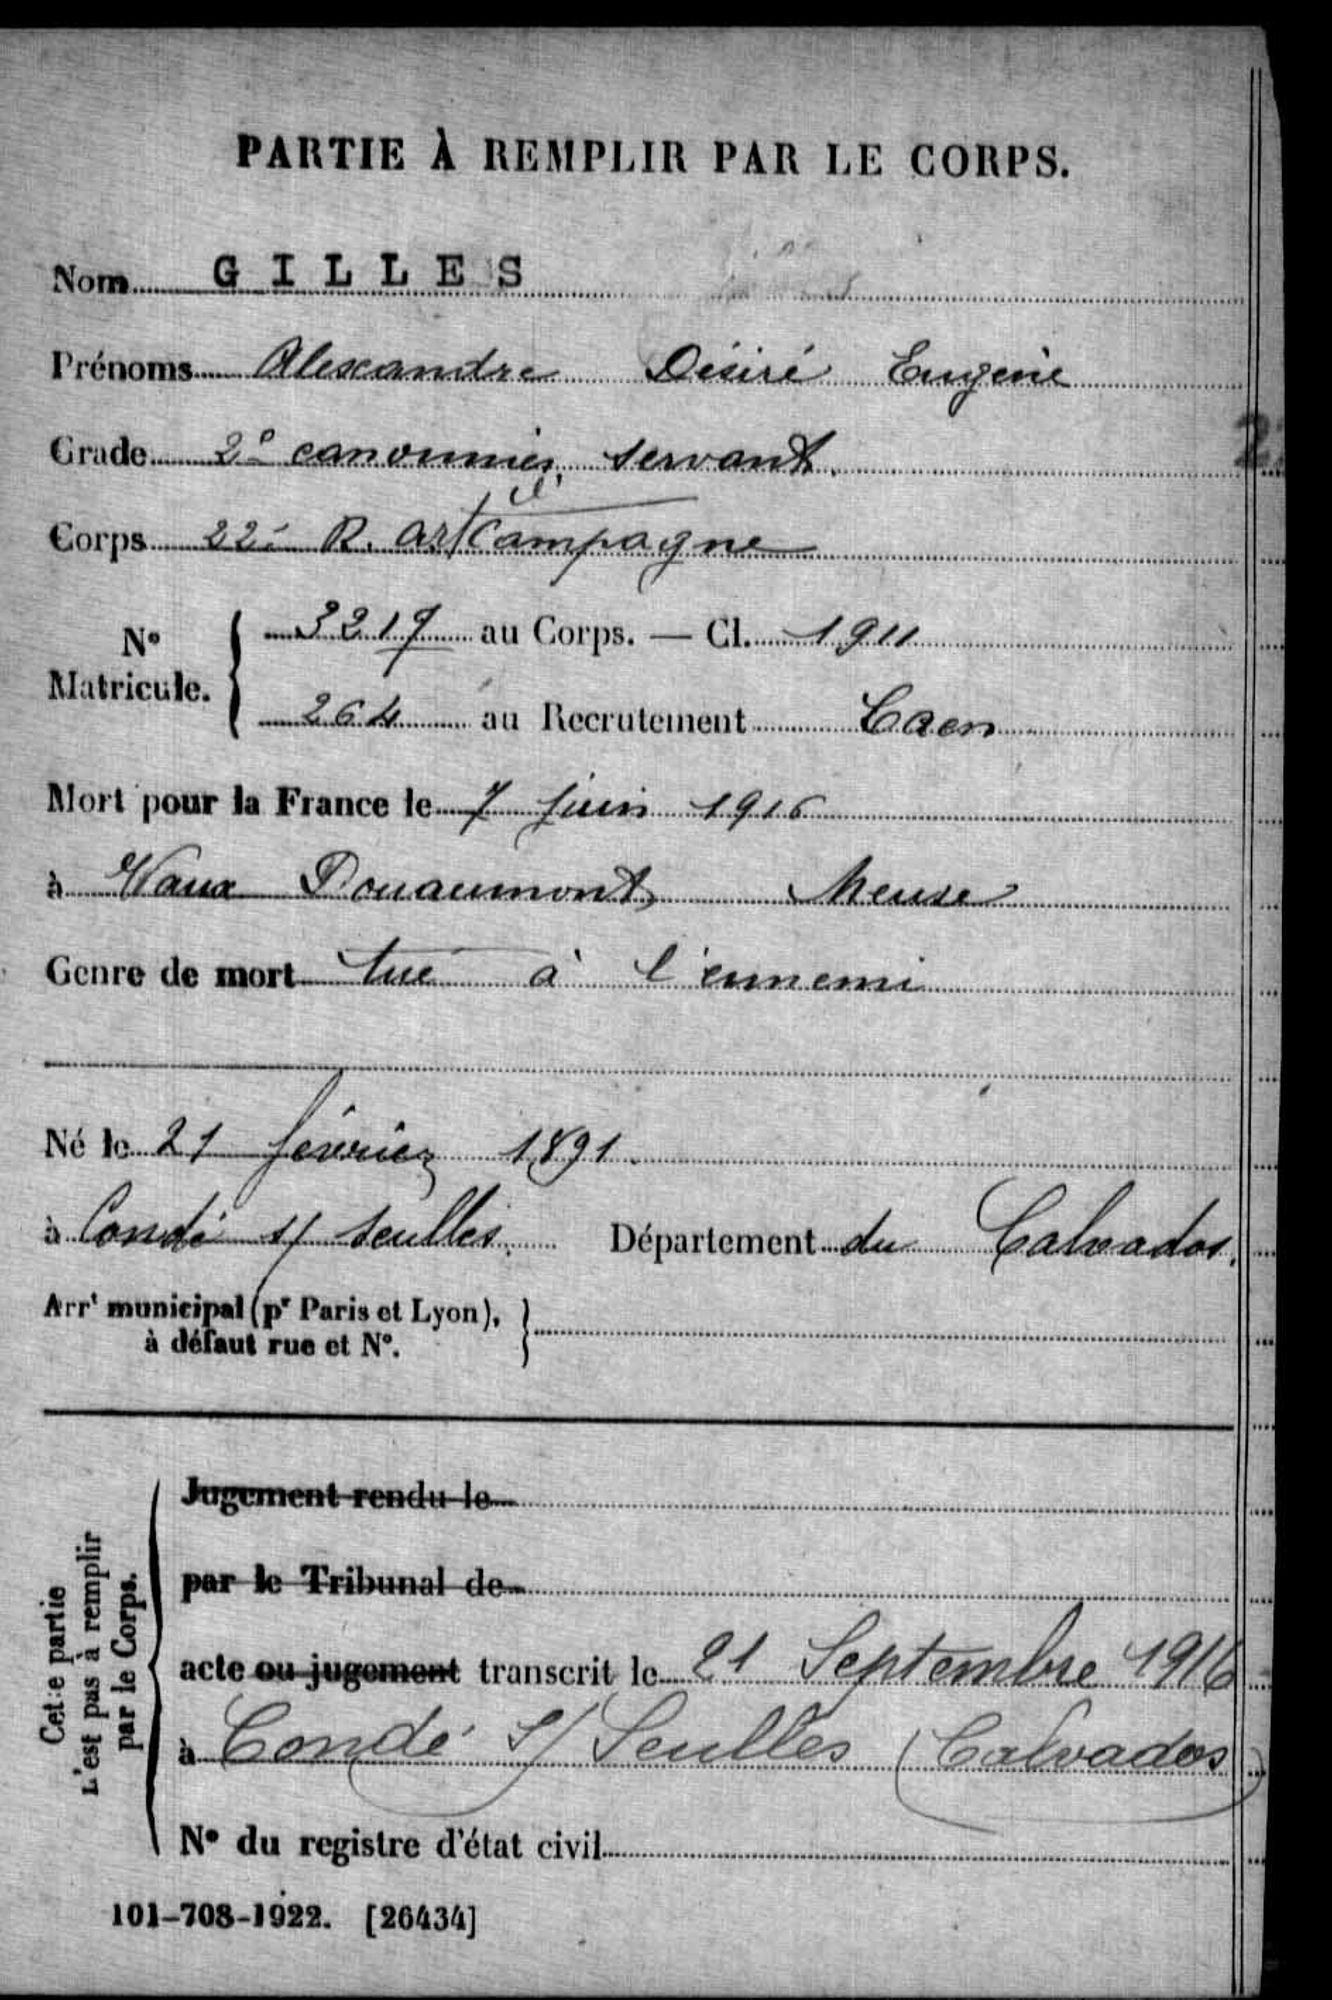 PARTIE À REMPLIR PAR LE CORPS.
Nom GILLES
Prénoms Alexandre Désiré Eugène
Grade 2e canonnier servant
Corps 22e R. Art Campagne
N° Matricule. 3217 au Corps. — Cl. 1911
264 au Recrutement Caen
Mort pour la France le 7 juin 1916
à Vaux Douaumont Meuse
Genre de mort tué à l'ennemi
Né le 21 février 1891
à Condé s/ Seulles. Département du Calvados.
Arrt municipal (pr Paris et Lyon),
à défaut rue et N°.
Cette partie
n'est pas à remplir
par le Corps.
Jugement rendu le
par le Tribunal de
acte ou jugement transcrit le 21 Septembre 1916
à Condé S/ Seulles (Calvados)
N° du registre d'état civil
101-708-1922. [26434]